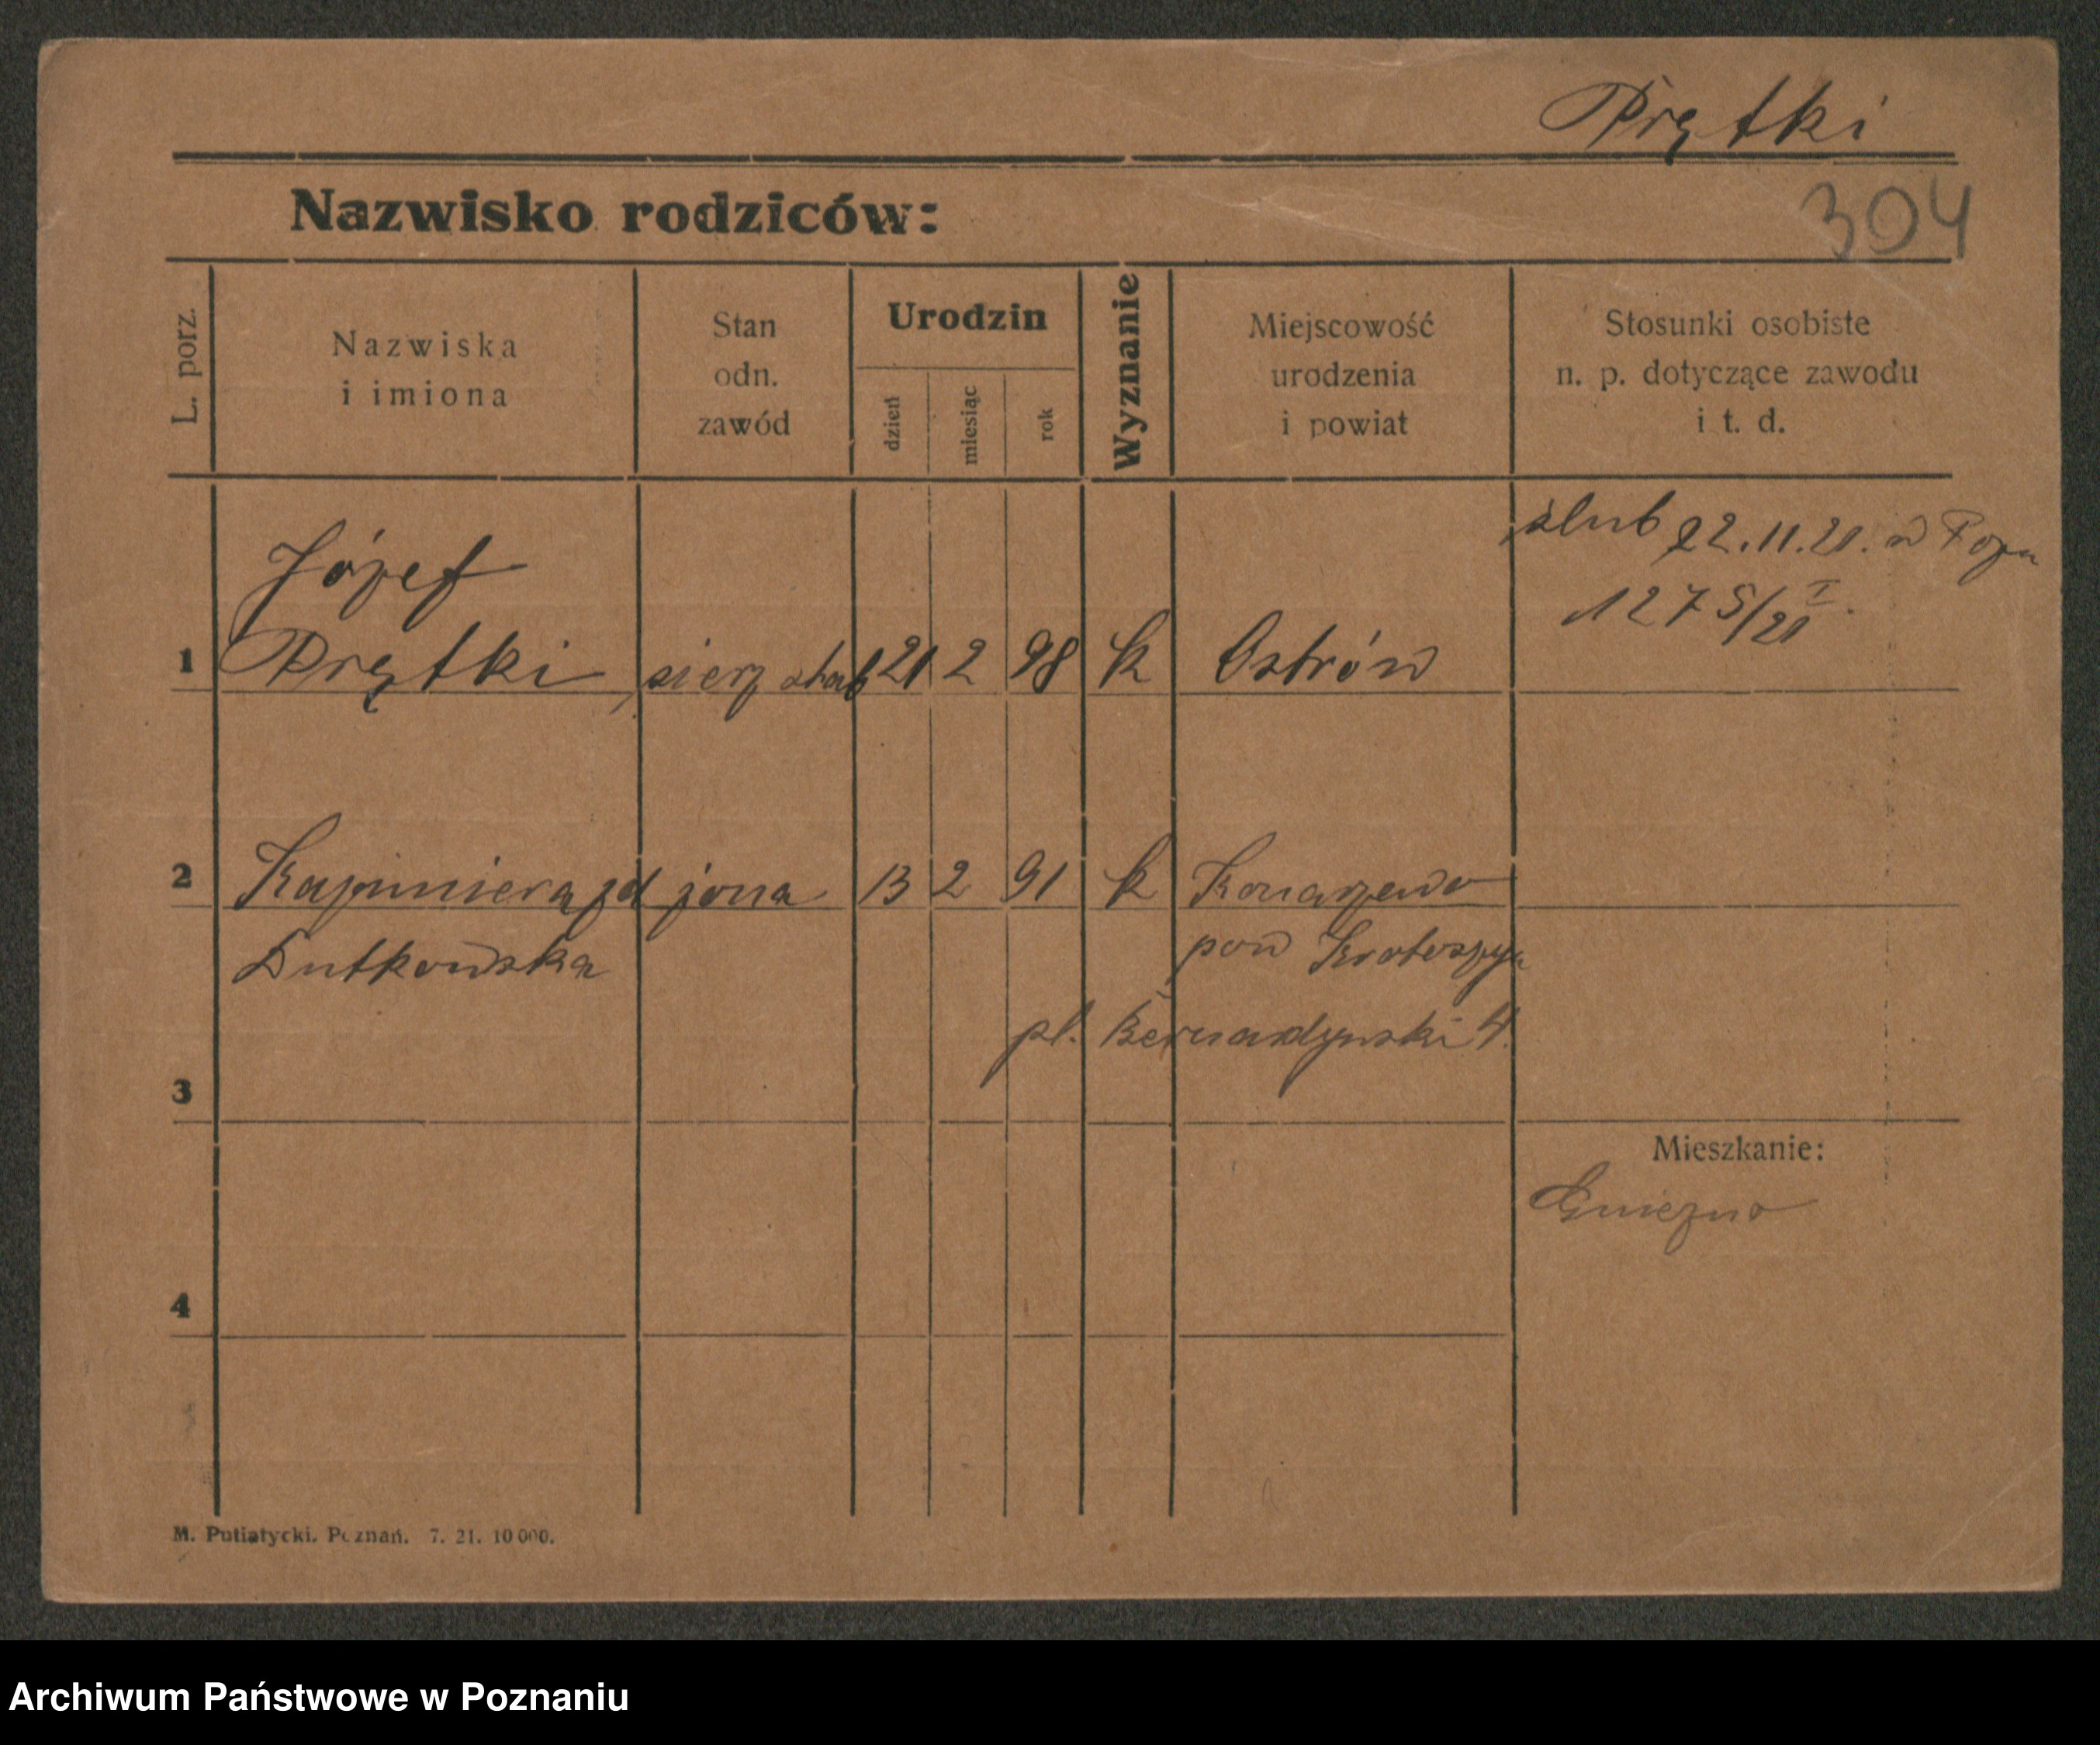 Prętki
Nazwisko rodziców:
304
L. porz.
Nazwiska
i imiona
Stan
odn.
zawód
Urodzin
dzień
miesiąc
rok
Wyznanie
Miejscowość
urodzenia
i powiat
Stosunki osobiste
n. p. dotyczące zawodu
i t. d.
ślub 22.11.21. w Pozn
1275/21 I.
Józef
1 Prętki sierż sztab 21 2 98 k Ostrów
2 Kazimiera zd żona 13 2 91 k Konarzewo
Dutkowska pow Krotoszyn
pl. Bernardyński 4.
3
Mieszkanie:
Gniezno
4
M. Putiatycki. Poznań. 7. 21. 10 000.
Archiwum Państwowe w Poznaniu